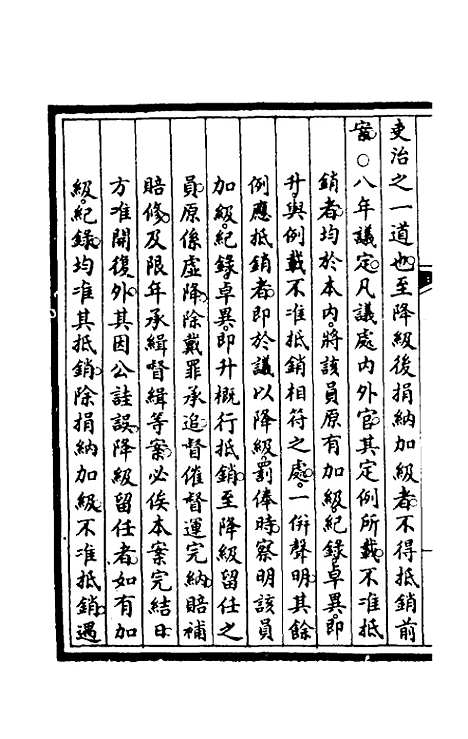 吏治之一道也至降級後捐納加級者不得抵銷前
案○八年議定凡議處內外官其定例所載不准抵
銷者均於本內將該員原有加級紀錄卓異即
升與例載不准抵銷相符之處一併聲明其餘
例應抵銷者即於議以降級罰俸時察明該員
加級紀錄卓異即升概行抵銷至降級留任之
員原係虛降除戴罪承追督催督運完納賠補
賠修及限年承緝督緝等案必俟本案完結日
方准開復外其因公詿誤降級留任者如有加
級紀錄均准其抵銷除捐納加級不准抵銷遇